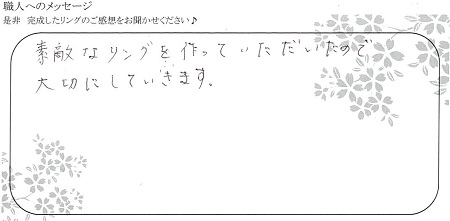 職人へのメッセージ
是非 完成したリングのご感想をお聞かせください♪
素敵なリングを作っていただいたので
大切にしていきます。